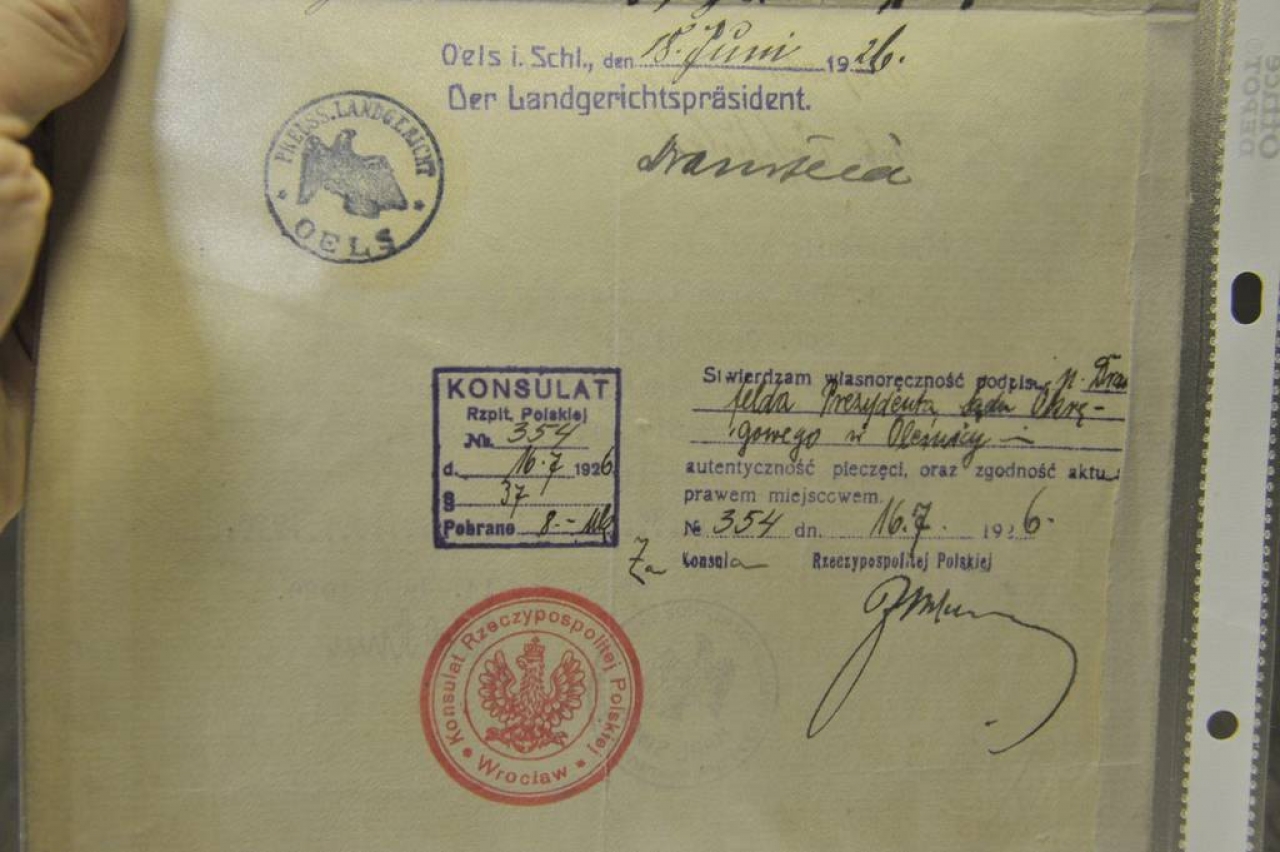 Oels i. Schl., den 18. Juni 1926.
Der Landgerichtspräsident.
PREUSS. LANDGERICHT
OELS
KONSULAT
Rzplt. Polskiej
№ 354
d. 16.7 1926
§ 37
Pobrano 8.-
Stwierdzam własnoręczność podpisu p. Dran
felda Prezydenta Sądu Okrę-
gowego w Oleśnicy
autentyczność pieczęci, oraz zgodność aktu
prawem miejscowem.
№ 354 dn. 16.7. 1926.
Za Konsula Rzeczypospolitej Polskiej
Konsulat Rzeczypospolitej Polskiej
Wrocław
Office
DEPOT